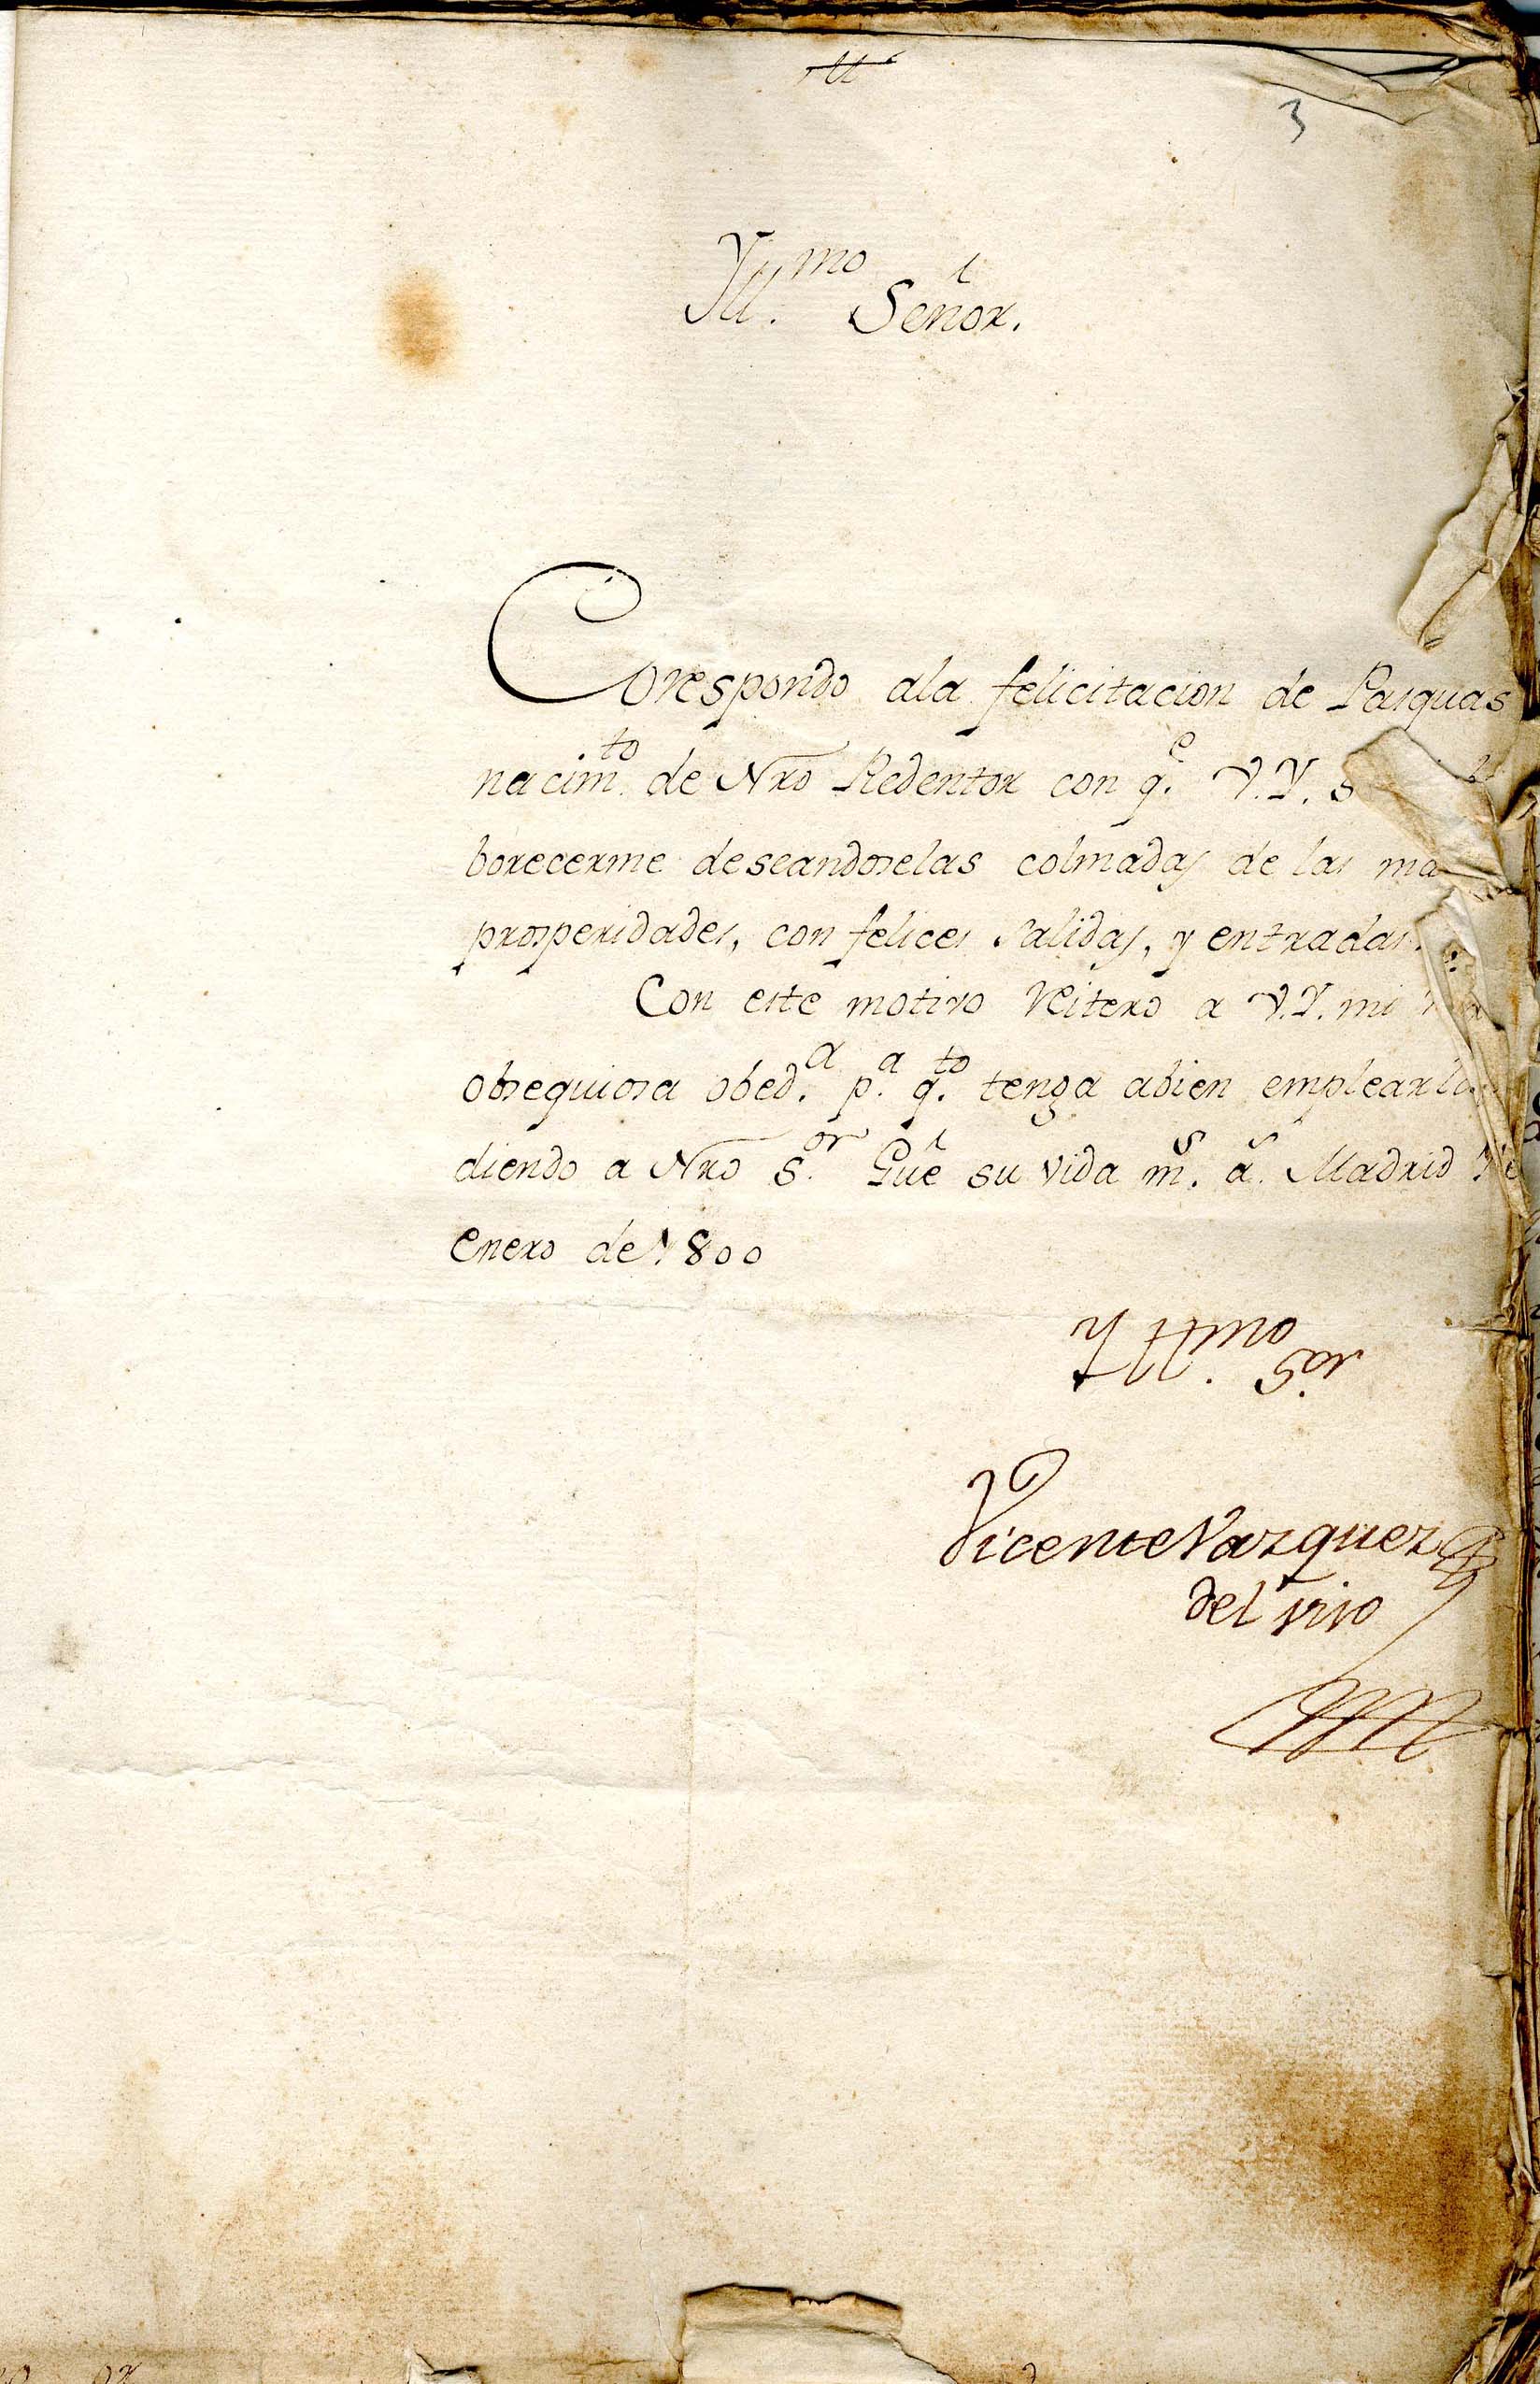 3
Yll.mo Señor.
Corespondo ala felicitacion de Pasquas
nacim.to de Nro Redentor con q.e V.Y. s
borecerme deseandoselas colmadas de las ma
prosperidades, con felices salidas, y entradas.
Con este motivo Reitero a V.Y. mi
obsequiosa obed.a p.a q.to tenga abien emplearla
diendo a Nro S.or Gue su vida m.s a.s Madrid
enero de 1800
Yll.mo S.or
Vicente Vazquez
del rivo